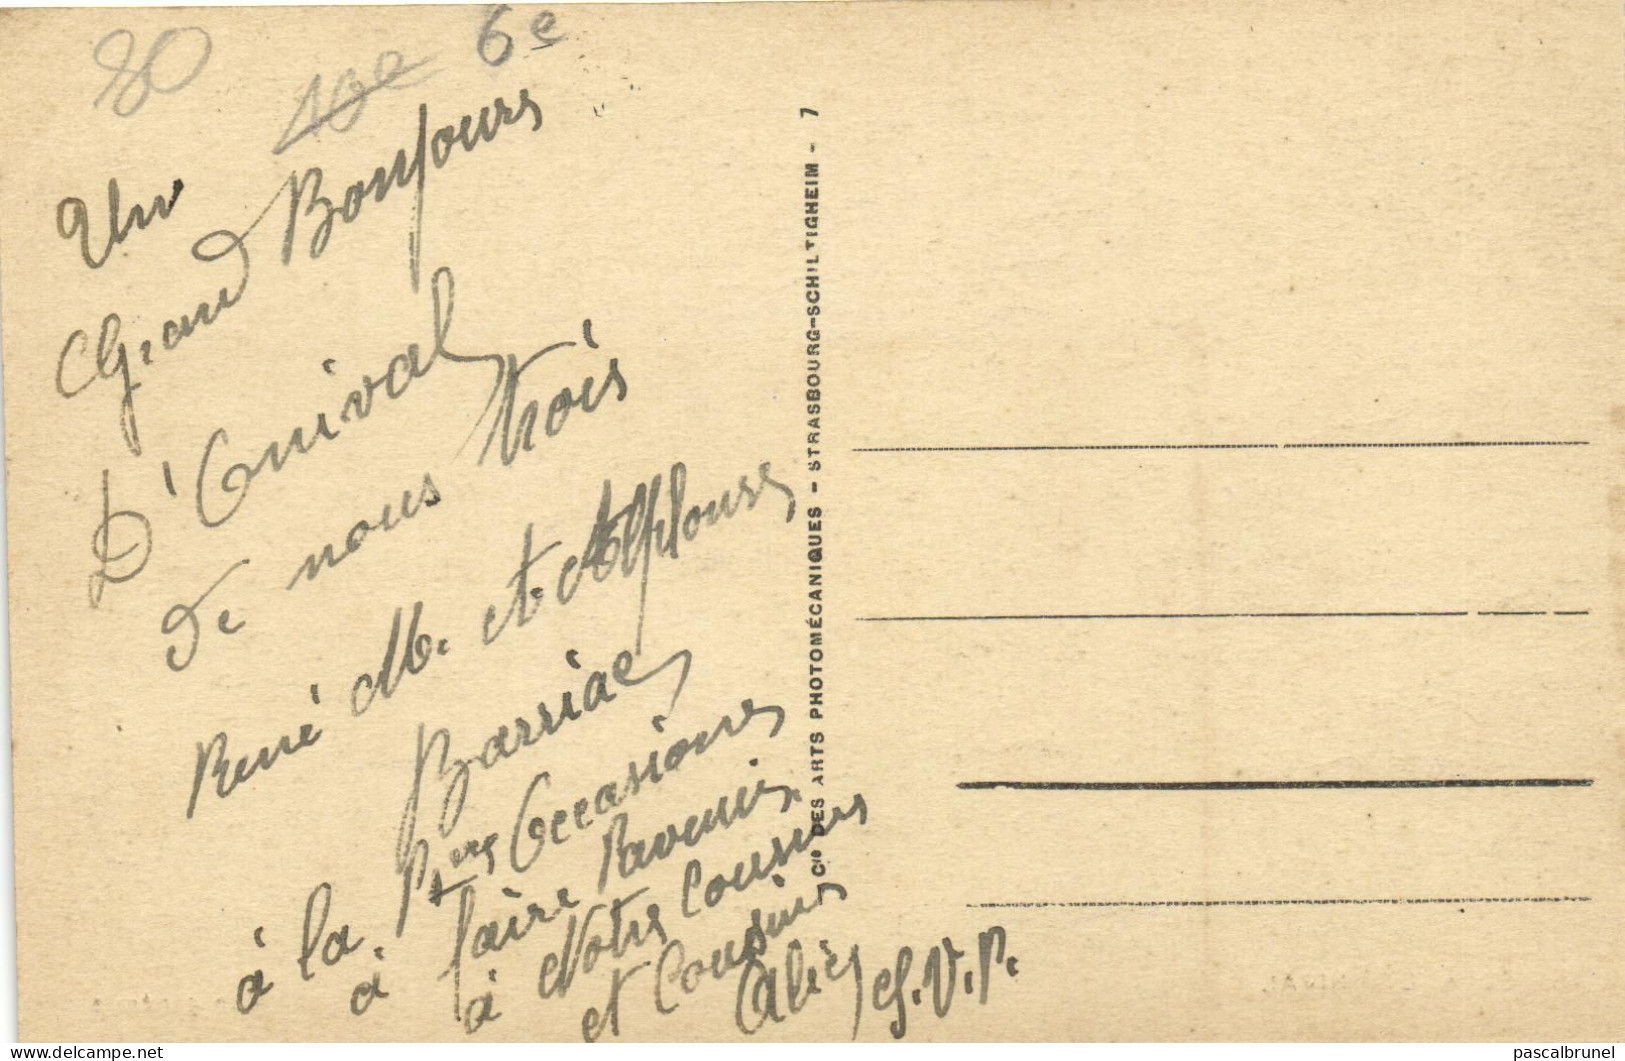 80
10e 6e
Un
Grand Bonjours
D'Enival
de nous trois
René M. et Alphonse
Barriac
à la 1ers Occasiones
à faire Pavenir
à Notre Cousines
et Cousins
Alès S.V.P.
Cie DES ARTS PHOTOMÉCANIQUES - STRASBOURG-SCHILTIGHEIM - 7
delcampe.net
pascalbrunel